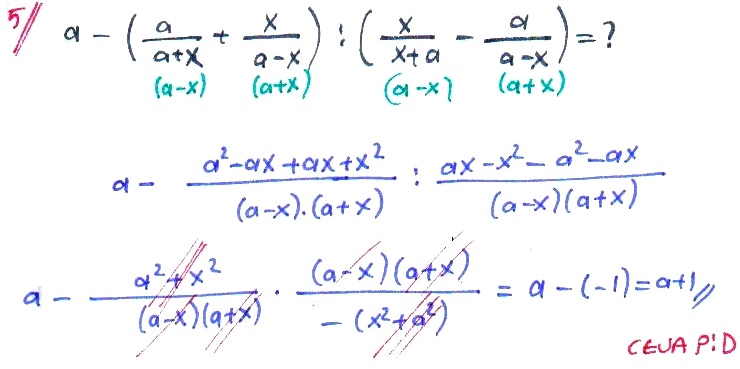 5// a - (a/(a+x) + x/(a-x)) : (x/(x+a) - a/(a-x)) = ?
(a-x) (a+x) (a-x) (a+x)
a - (a²-ax+ax+x²)/((a-x).(a+x)) : (ax-x²-a²-ax)/((a-x)(a+x))
a - (a²+x²)/((a-x)(a+x)) · ((a-x)(a+x))/(-(x²+a²)) = a-(-1) = a+1//